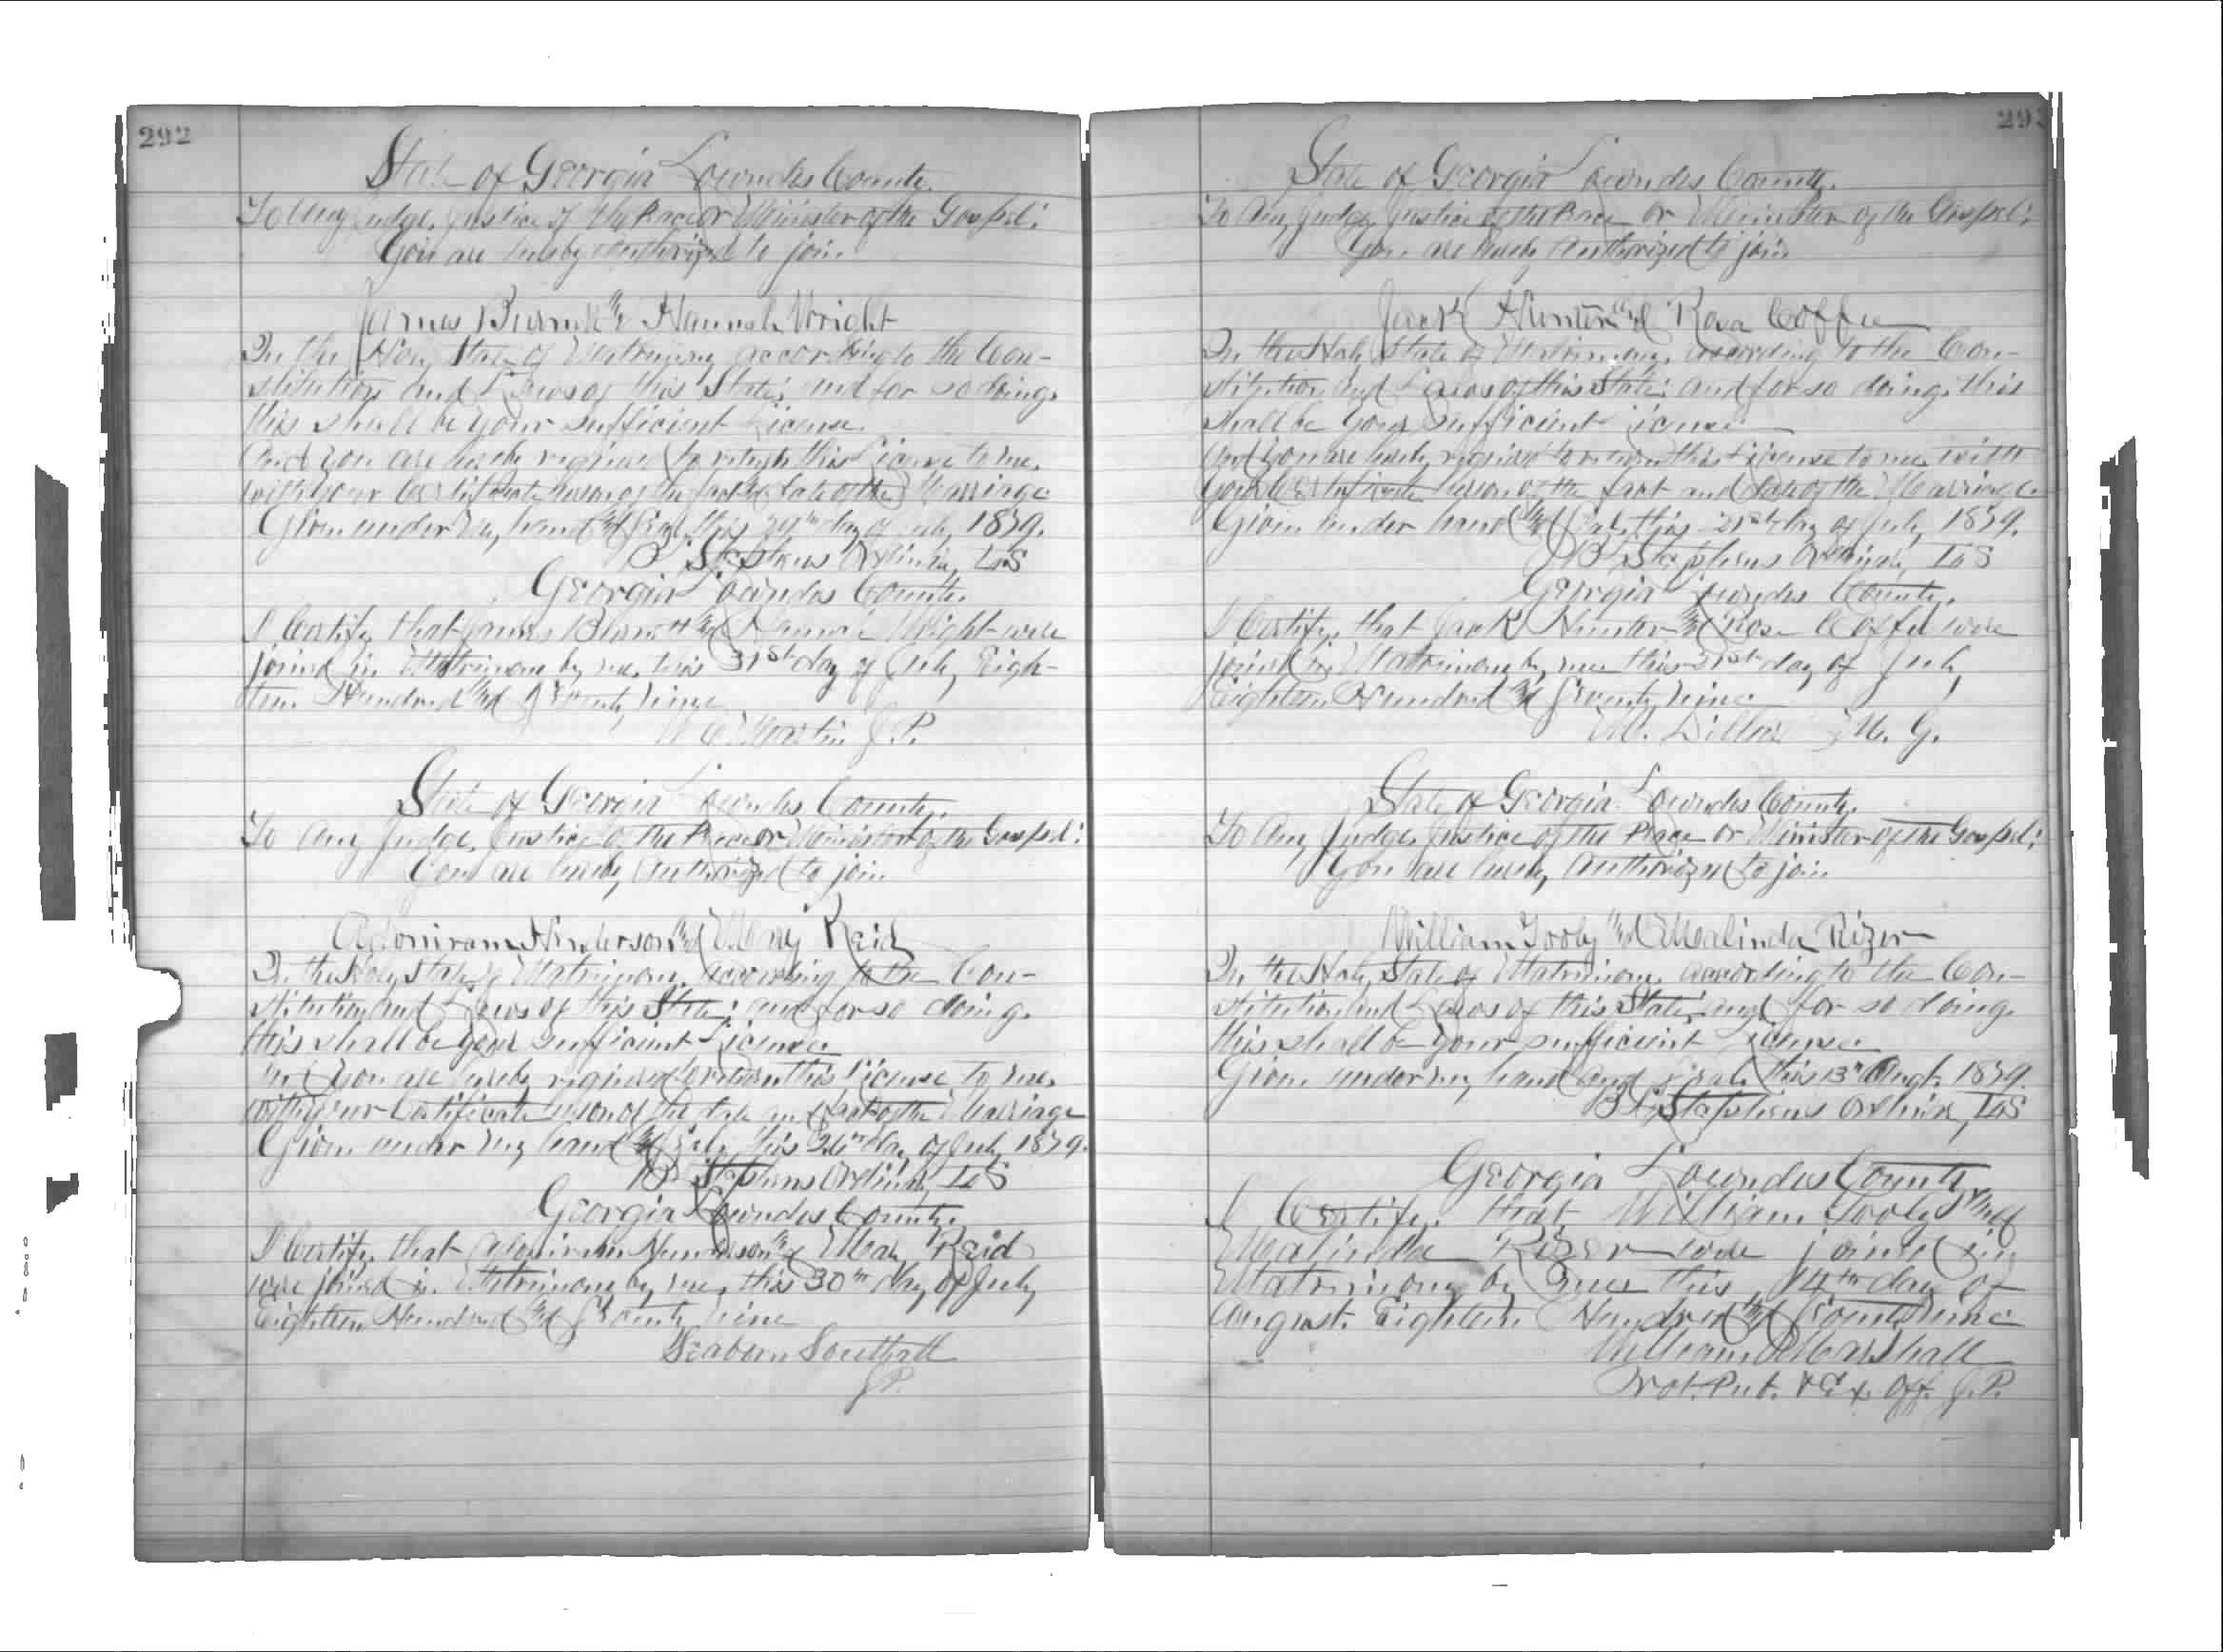 292
State of Georgia Lowndes County.
To Any Judge, Justice of the Peace or Minister of the Gospel:
You are hereby authorized to join
James Burnett & Hannah Wright
In the Holy State of Matrimony according to the Con-
stitution and Laws of this State; and for so doing,
this shall be your sufficient License.
And you are hereby required to return this License to me,
with your Certificate hereon of the fact & date of the Marriage
Given under my hand and seal, this 29th day of July, 1879.
B Stephens Ordinary L.S
Georgia Lowndes County.
I Certify, that James Burnett and Hannah Wright were
joined in Matrimony by me, this 31st day of July, Eigh-
teen Hundred and Seventy Nine
Martin J.P.
State of Georgia Lowndes County.
To Any Judge, Justice of the Peace or Minister of the Gospel:
You are hereby, authorized to join
Adoniram Henderson and Mary Reid
In the Holy State of Matrimony, according to the Con-
stitution and Laws of this State; and for so doing,
this shall be your sufficient License
And you are hereby required to return this License to me,
with your Certificate hereon of the date and fact of the Marriage
Given under my hand and seal, this 26th day of July 1879.
B Stephens Ordinary L.S
Georgia Lowndes County.
I Certify, that Adoniram Henderson & Mary Reid
were joined in Matrimony by me, this 30th day of July,
Eighteen Hundred and Seventy Nine
Seaborn Southall
J.P.
293
State of Georgia Lowndes County.
To Any Judge, Justice of the Peace or Minister of the Gospel:
You are hereby Authorized to join
Jack Hunter and Rosa Coffee
In the Holy State of Matrimony, according to the Con-
stitution and Laws of this State; and for so doing, this
shall be your sufficient License
And you are hereby required to return this License to me, with
your Certificate hereon of the fact and date of the Marriage.
Given under hand and seal, this 21st day of July, 1879.
B Stephens Ordinary L.S
Georgia Lowndes County.
I Certify, that Jack Hunter and Rosa Coffee were
joined in Matrimony by me this 31st day of July,
Eighteen Hundred and Seventy Nine
M. G.
State of Georgia Lowndes County.
To Any Judge, Justice of the Peace or Minister of the Gospel:
You are hereby, authorized to join
William Tooly and Malinda Rizer
In the Holy State of Matrimony, according to the Con-
stitution and Laws of this State; and for so doing,
this shall be your sufficient License
Given under my hand and seal, this 13th Augt. 1879.
B Stephens Ordinary, L.S
Georgia Lowndes County
I Certify, that William Tooly and
Malinda Rizer were joined in
Matrimony by me this 14th day of
August, Eighteen Hundred and Seventy Nine
William Marshall
Not. Pub. & Ex. Off. J.P.